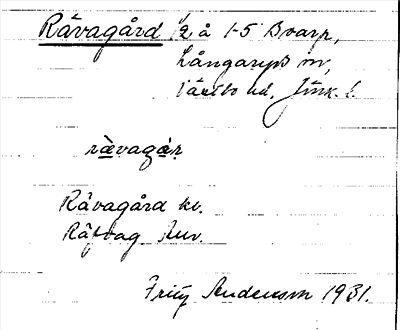 Rävagård 1/2 å 1-5 Boarp,
Långaryds sn,
Västbo hd. Jönk. l.
rävagår
Rävagård kv.
Räfvag
Fritz Andersson 1931.